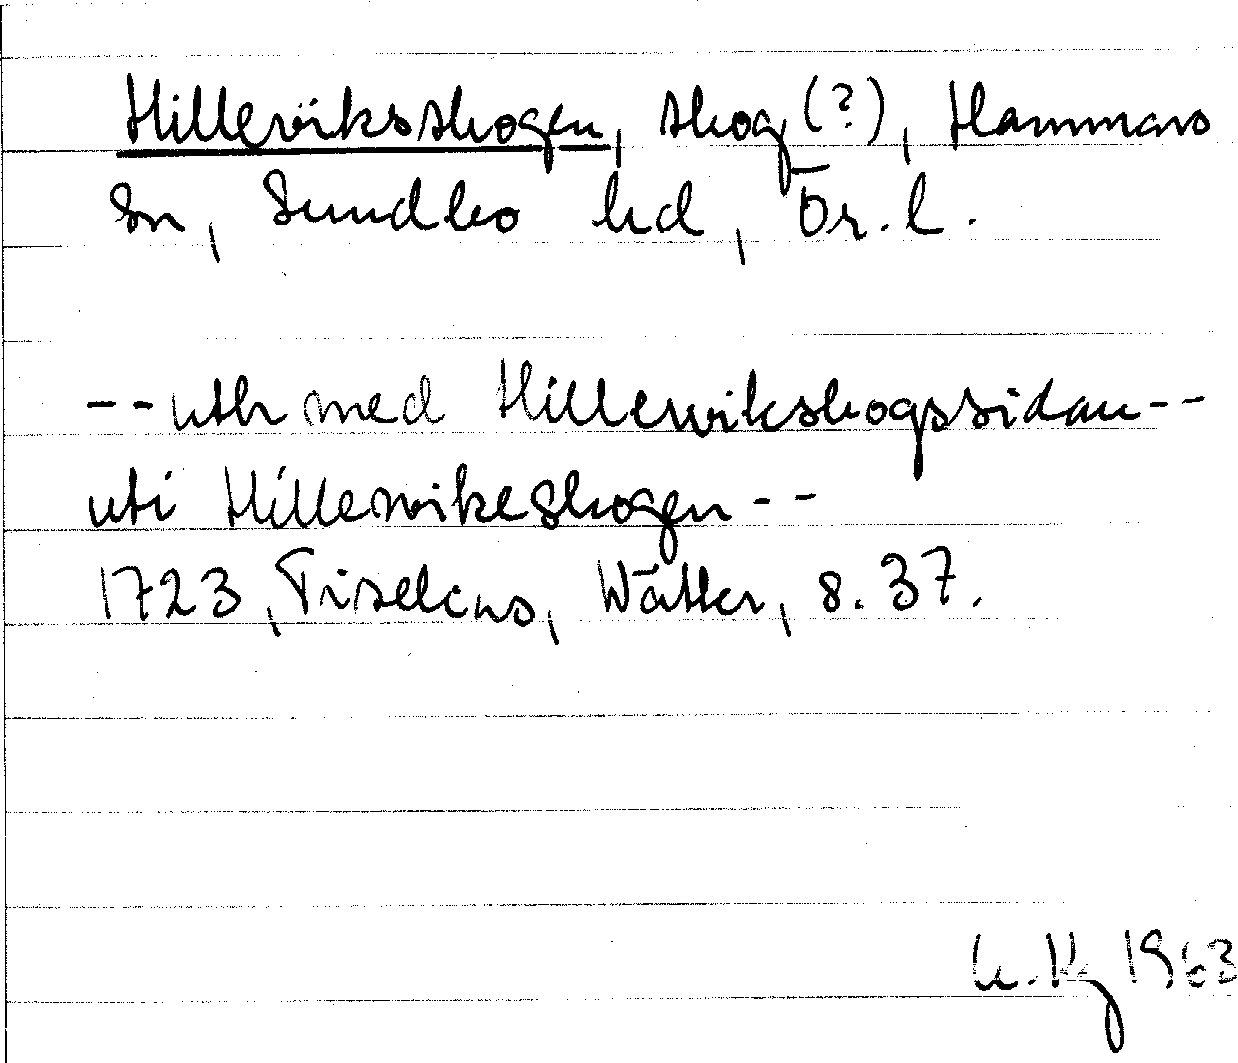 Hilleviksskogen, skog (?), Hammars
sn, Sundbo hd, Ör. l.
-- uth med Hillewikskogssidan --
uti Hillewikeskogen --
1723, Tiselius, Wätter, s. 37.
1963